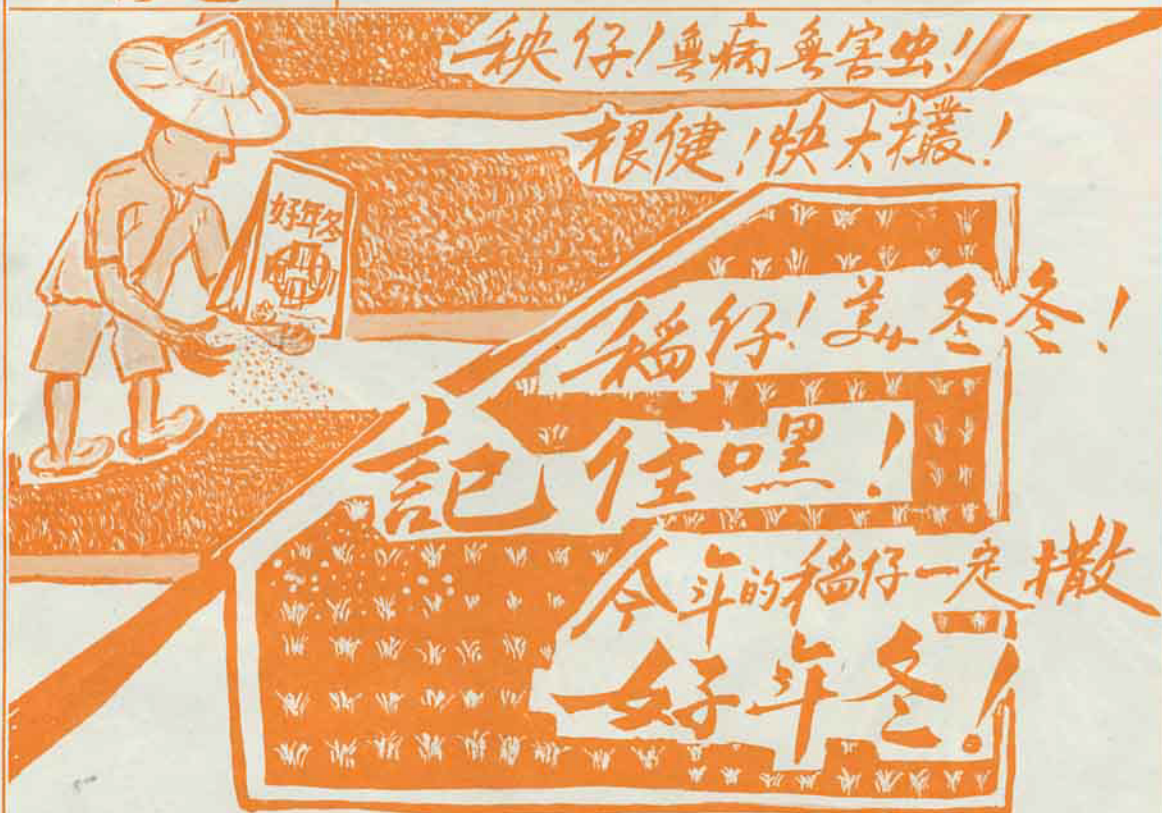 秧仔!無病無害虫!
根健!快大欉!
好年冬
稻仔!美冬冬!
記住嘿!
今年的稻仔一定撒
好年冬!